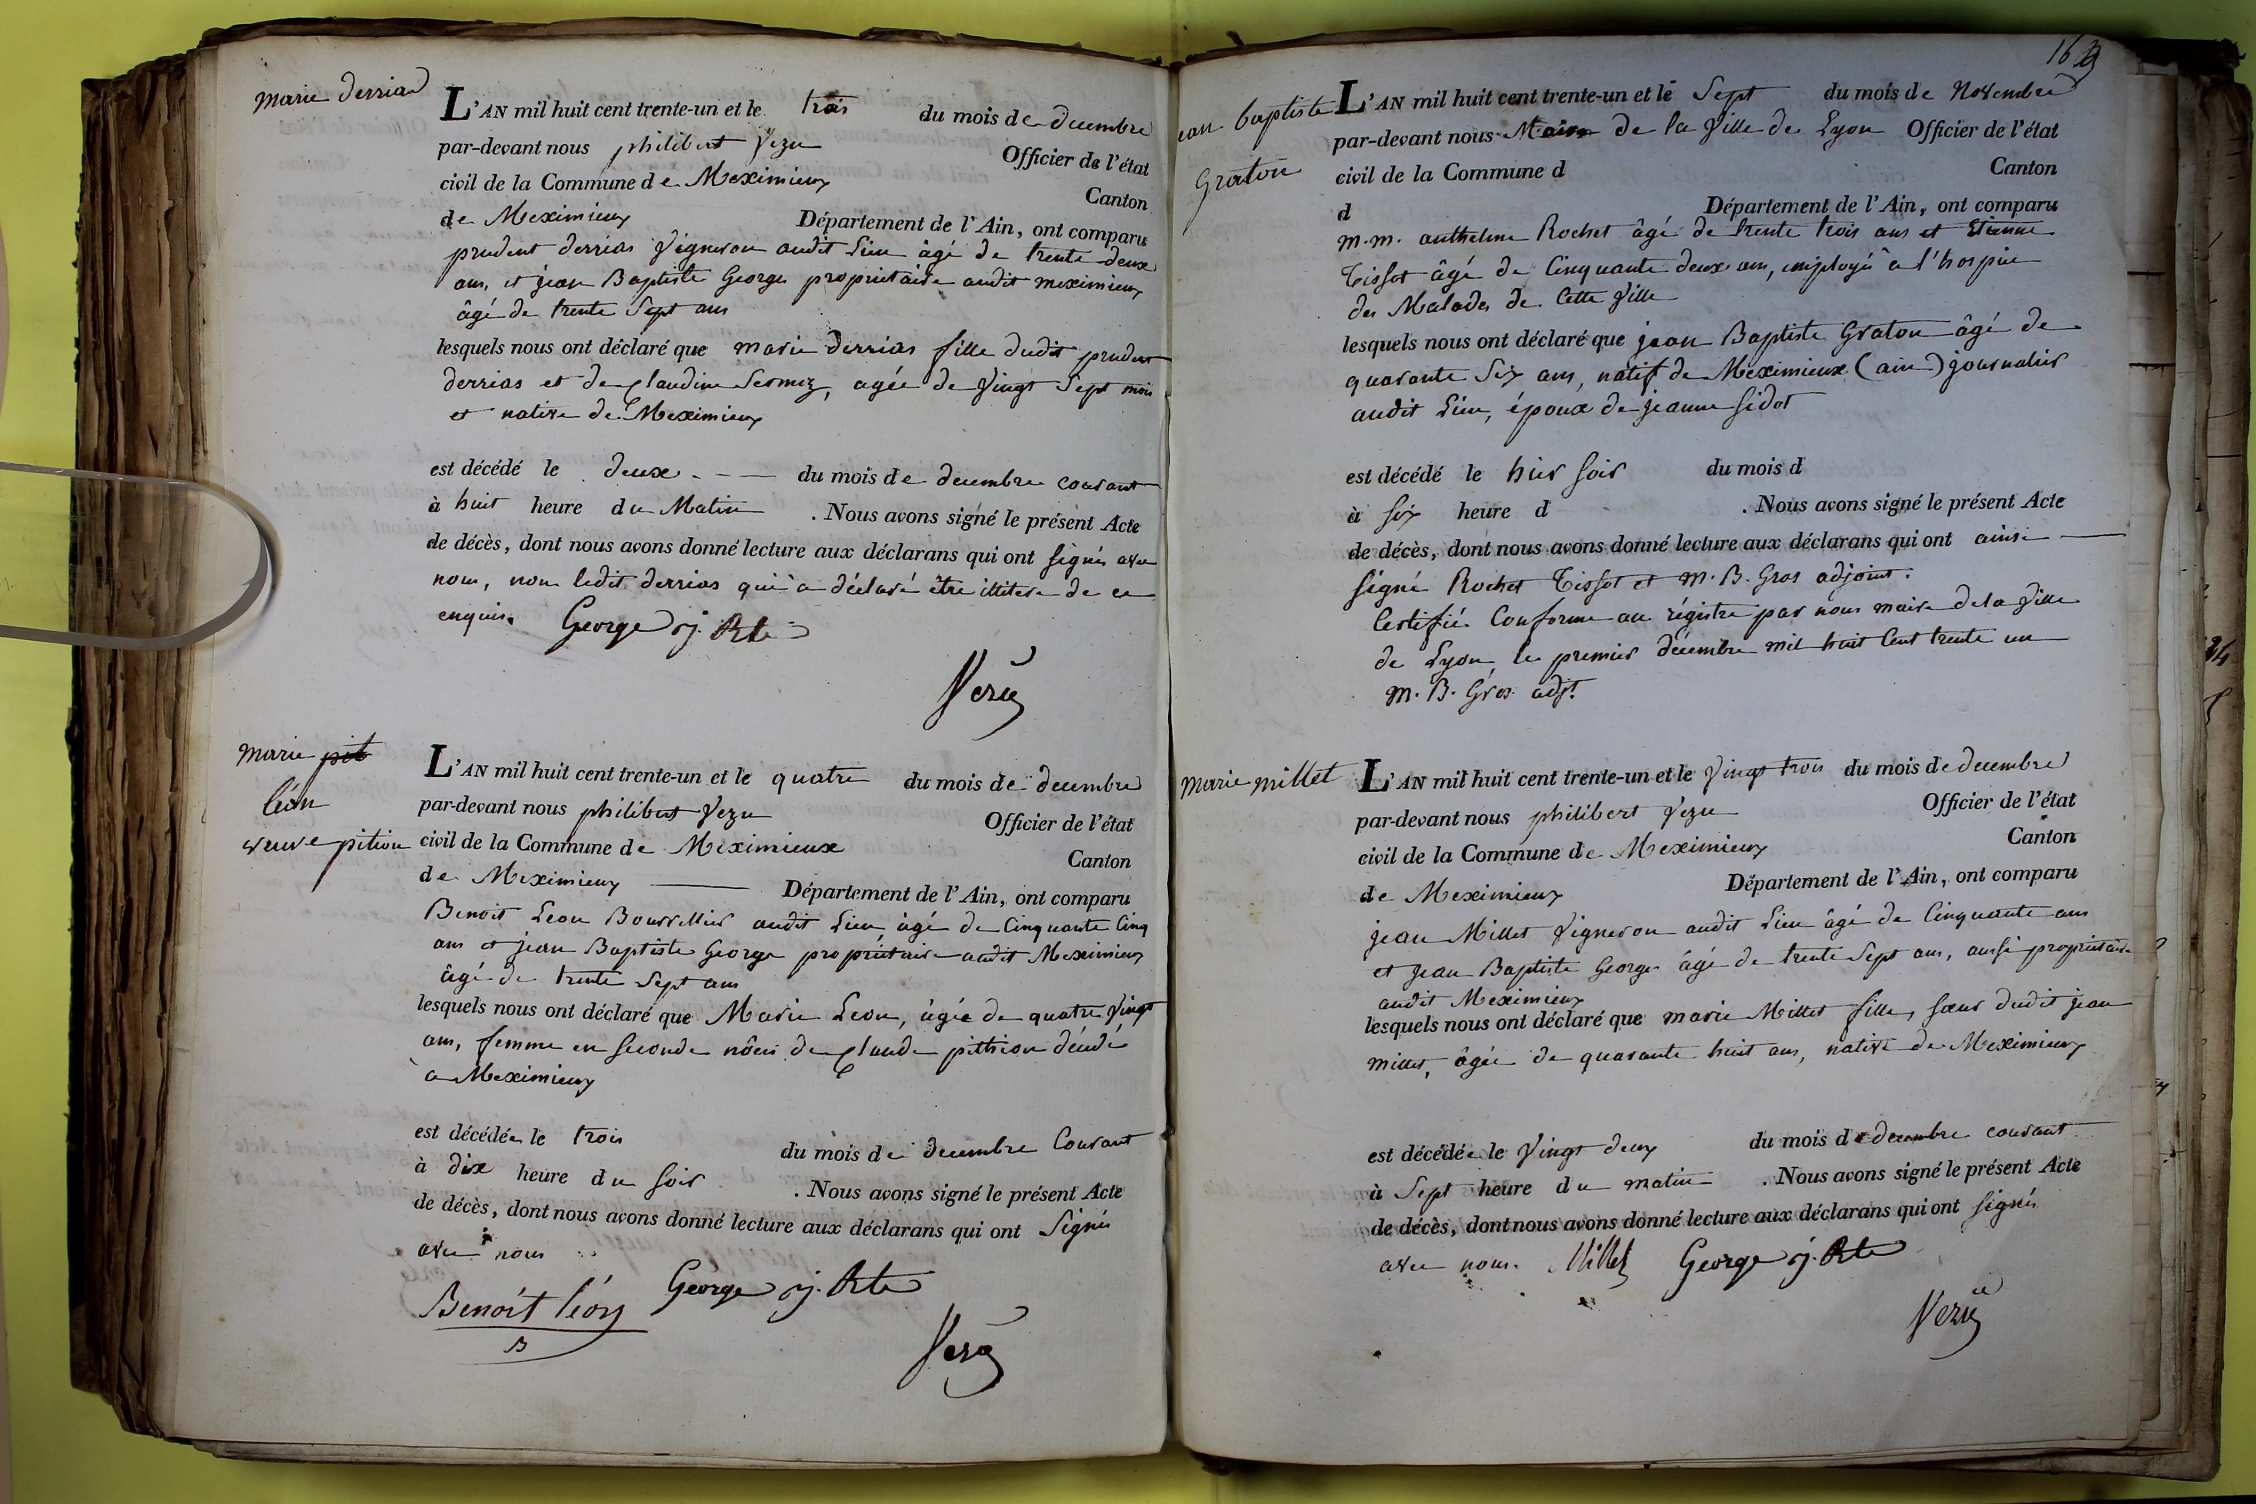 marie derrias
L'AN mil huit cent trente-un et le trois du mois de decembre
par-devant nous philibert Vezu Officier de l'état
civil de la Commune de Meximieux Canton
de Meximieux Département de l'Ain, ont comparu
prudent derrias Vigneron audit Lieu âgé de trente deux
ans, et jean Baptiste George propriétaire audit meximieux
âgé de trente Sept ans
lesquels nous ont déclaré que marie derrias fille dudit prudent
derrias et de Claudine Sermez, agée de Vingt Sept mois
et native de Meximieux
est décédé le deux - — du mois de decembre courant
à huit heure du Matin . Nous avons signé le présent Acte
de décès, dont nous avons donné lecture aux déclarans qui ont signés avec
nous, non ledit derrias qui a déclaré être illitere de ce
enquis. George
Vezu
marie pit
léon
veuve pition
L'AN mil huit cent trente-un et le quatre du mois de decembre
par-devant nous philibert Vezu Officier de l'état
civil de la Commune de Meximieux Canton
de Meximieux — Département de l'Ain, ont comparu
Benoit Leon Bourrellier audit Lieu âgé de Cinquante Cinq
ans et jean Baptiste George propriétaire audit Meximieux
âgé de trente Sept ans
lesquels nous ont déclaré que Marie Leon, âgée de quatre Vingt
ans, femme en seconde nôces de Claude pithion décédé
a Meximieux
est décédée le trois du mois de decembre Courant
à dix heure du soir . Nous avons signé le présent Acte
de décès, dont nous avons donné lecture aux déclarans qui ont Signés
avec nous
Benoit léon George
B
Vezu
163
jean baptiste
Graton
L'AN mil huit cent trente-un et le Sept du mois de Novembre
par-devant nous Maire de la Ville de Lyon Officier de l'état
civil de la Commune d Canton
d Département de l'Ain, ont comparu
m.m. anthelme Rochet âgé de trente trois ans et Etienne
Tissot âgé de Cinquante deux ans, employés à l'hospice
des Malades de Cette Ville
lesquels nous ont déclaré que jean Baptiste Graton âgé de
quarante Six ans, natif de Meximieux (ain) journalier
audit Lieu, époux de jeanne sidot
est décédé le hier soir du mois d
à six heure d . Nous avons signé le présent Acte
de décès, dont nous avons donné lecture aux déclarans qui ont ainsi —
signé Rochet Tissot et M. B. Gros adjoint.
Certifié Conforme au régistre par nous maire de la Ville
de Lyon, le premier décembre mil huit Cent trente un
M. B. Gros adjt.
marie millet
L'AN mil huit cent trente-un et le Vingt trois du mois de decembre
par-devant nous philibert Vezu Officier de l'état
civil de la Commune de Meximieux Canton
de Meximieux Département de l'Ain, ont comparu
jean Millet Vigneron audit Lieu âgé de Cinquante ans
et jean Baptiste George âgé de trente Sept ans, aussi propriétaire
audit Meximieux
lesquels nous ont déclaré que marie Millet fille, sœur dudit jean
millet, âgée de quarante huit ans, native de Meximieux
est décédée le Vingt deux du mois de decembre courant
à Sept heure du matin . Nous avons signé le présent Acte
de décès, dont nous avons donné lecture aux déclarans qui ont signés
avec nous. Millet George
Vezu